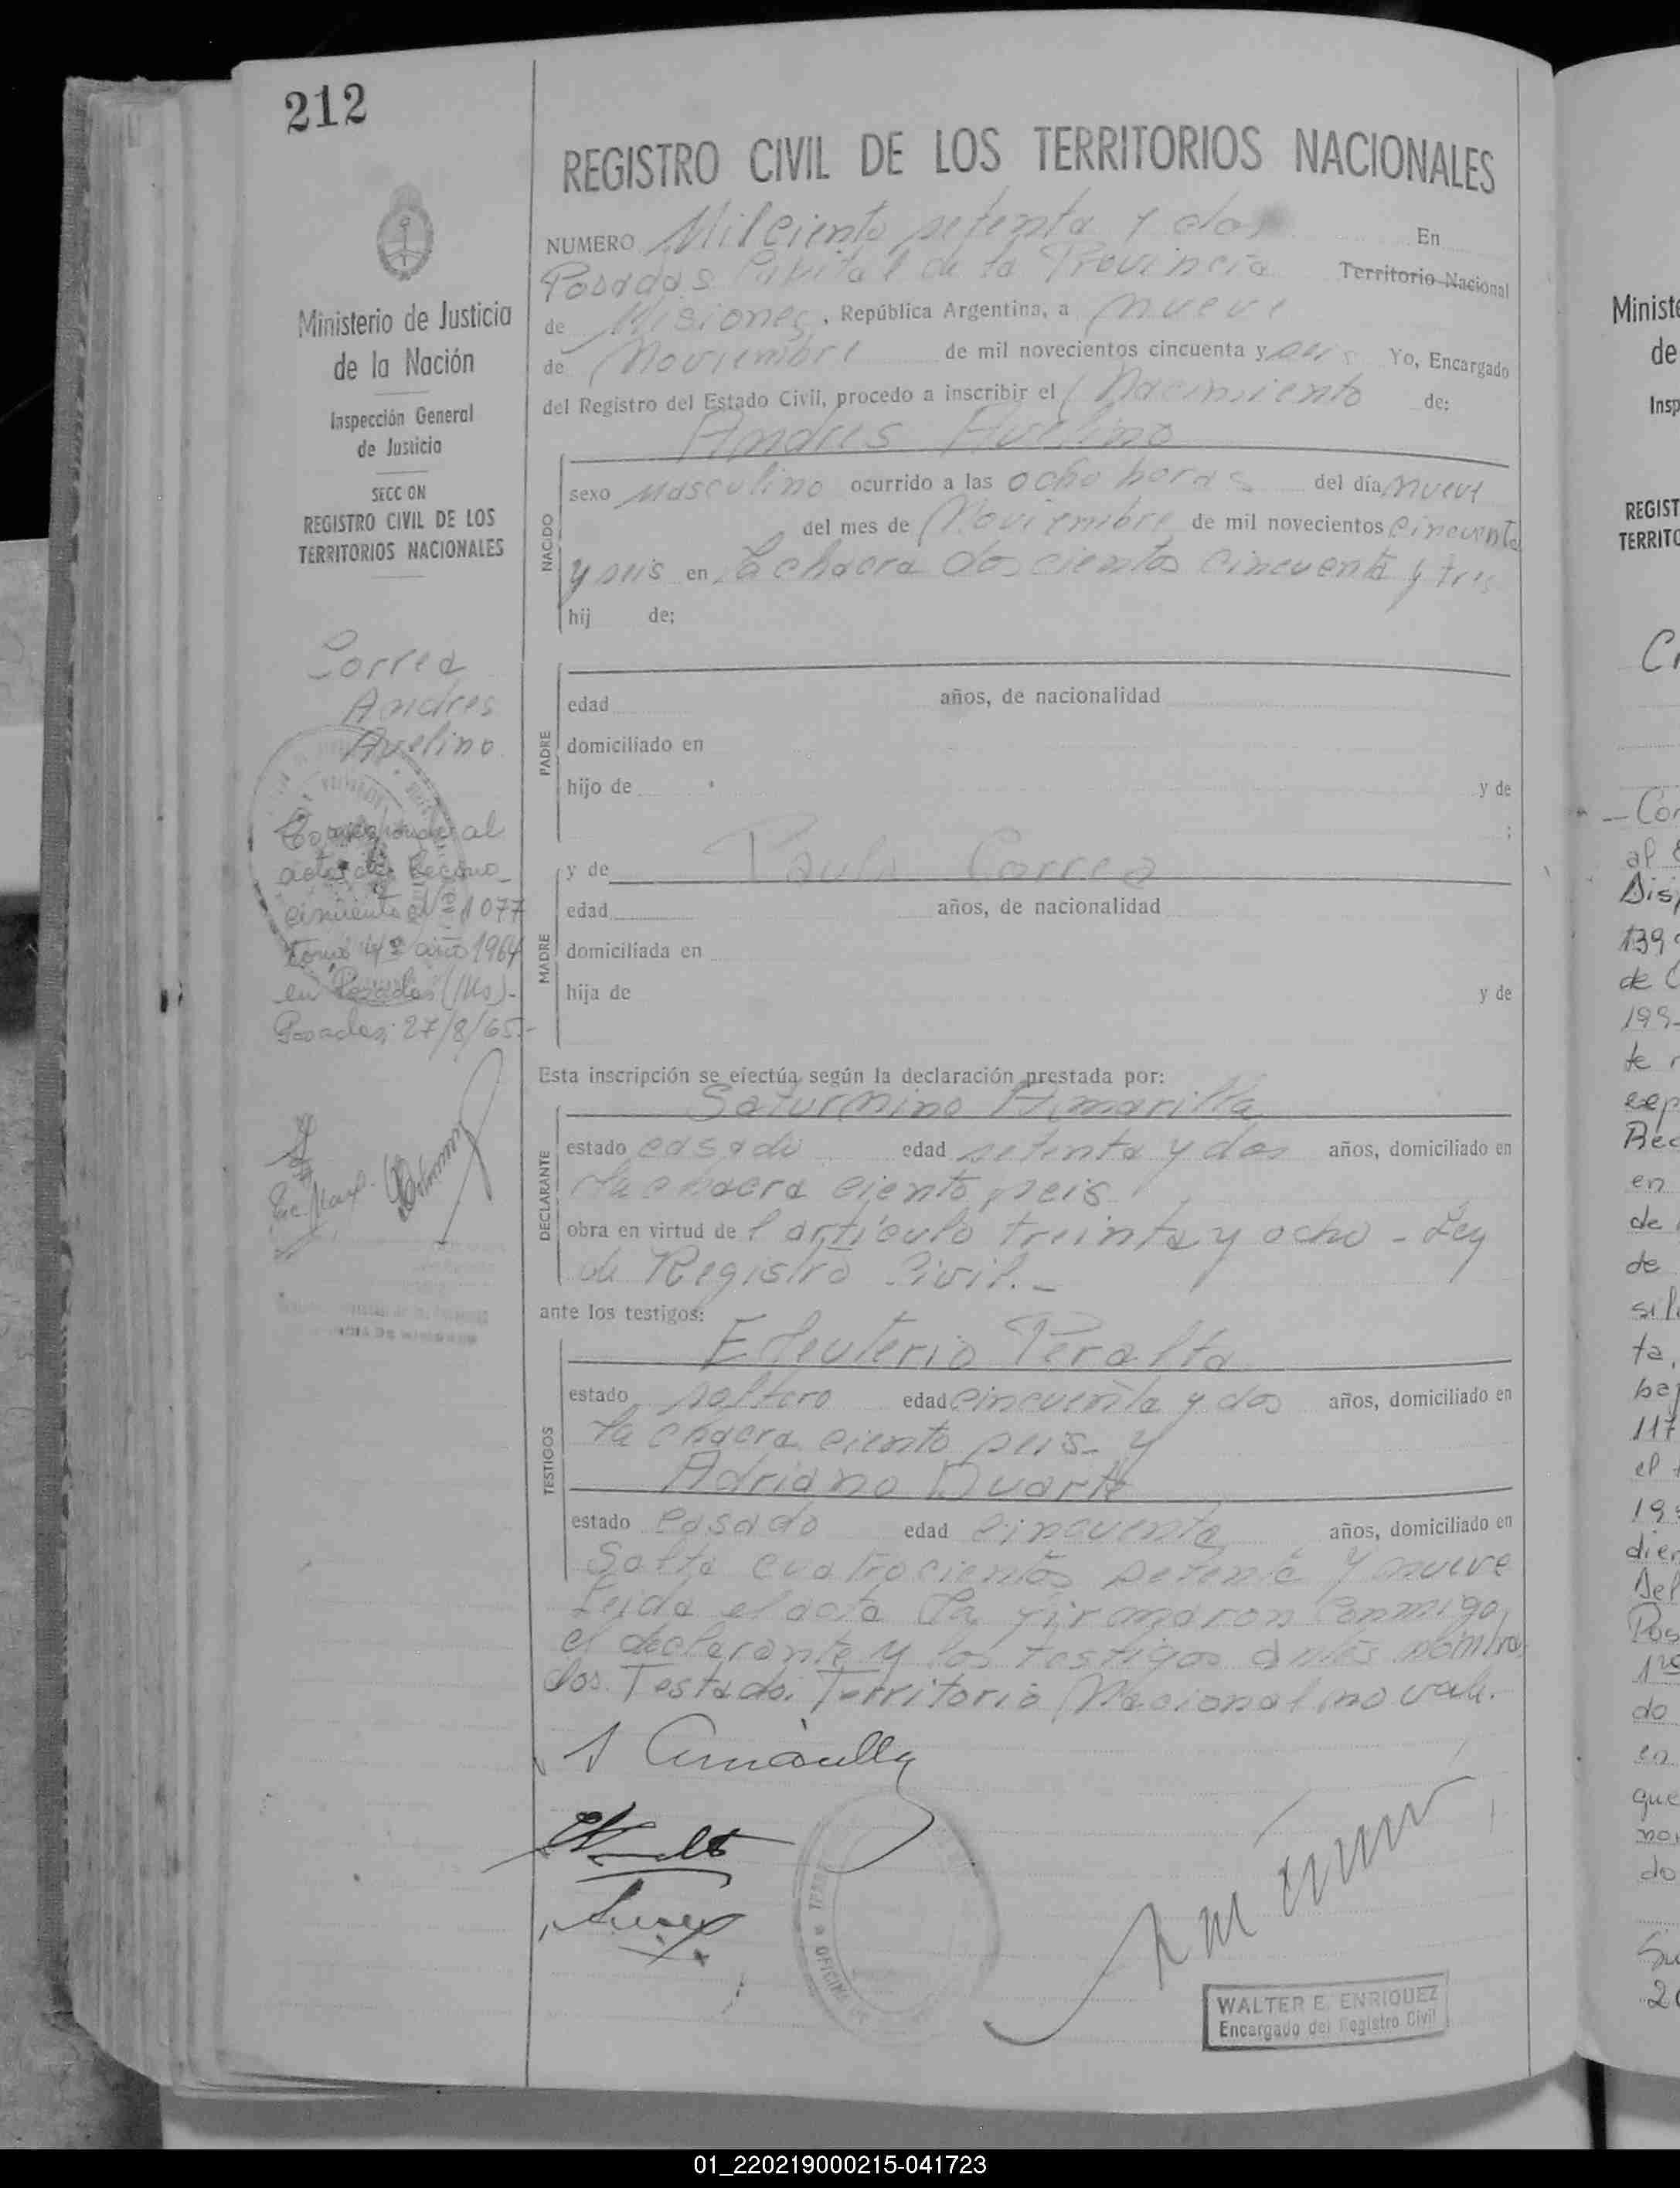 212
REGISTRO CIVIL DE LOS TERRITORIOS NACIONALES
NUMERO Mil ciento setenta y dos En
Posadas Capital de la Provincia Territorio Nacional
de Misiones, República Argentina, a nueve
de Noviembre de mil novecientos cincuenta y seis Yo, Encargado
del Registro del Estado Civil, procedo a inscribir el Nacimiento de:
Andres Avelino
NACIDO
sexo Masculino ocurrido a las ocho horas del día nueve
del mes de Noviembre de mil novecientos cincuenta
y seis en La chacra doscientos cincuenta y tres
hij de:
PADRE
edad años, de nacionalidad
domiciliado en
hijo de y de
;
MADRE
y de Paula Correa
edad años, de nacionalidad
domiciliada en
hija de y de
Esta inscripción se efectúa según la declaración prestada por:
Saturnino Amarilla
DECLARANTE
estado casado edad setenta y dos años, domiciliado en
la chacra ciento seis
obra en virtud del artículo treinta y ocho - Ley
de Registro Civil. -
ante los testigos:
Eleuterio Peralta
TESTIGOS
estado soltero edad cincuenta y dos años, domiciliado en
la chacra ciento seis - y
Adriano Duarte
estado casado edad cincuenta años, domiciliado en
Salta cuatrocientos setenta y nueve
Leida el acta la firmaron conmigo,
el declarante y los testigos antes nombra
dos. Testado: Territorio Nacional no vale.
S Amarilla
WALTER E. ENRIQUEZ
Encargado del Registro Civil
Ministerio de Justicia
de la Nación
Inspección General
de Justicia
SECCION
REGISTRO CIVIL DE LOS
TERRITORIOS NACIONALES
Correa
Andres
Avelino
Corresponde al
acta de Recono_
cimiento Nº 1077
tomo 4º año 1964
en Posadas (Ms).-
Posadas: 27/8/65.-
OFICINA
Minist
de
Insp
REGIST
TERRITO
- Cor
al
Disp
139
de C
199
te
exp
Rec
en
de
de
sil
ta,
baj
117
el
19
dier
Del
Pos
1º
do
en
que
no
do
01_220219000215-041723